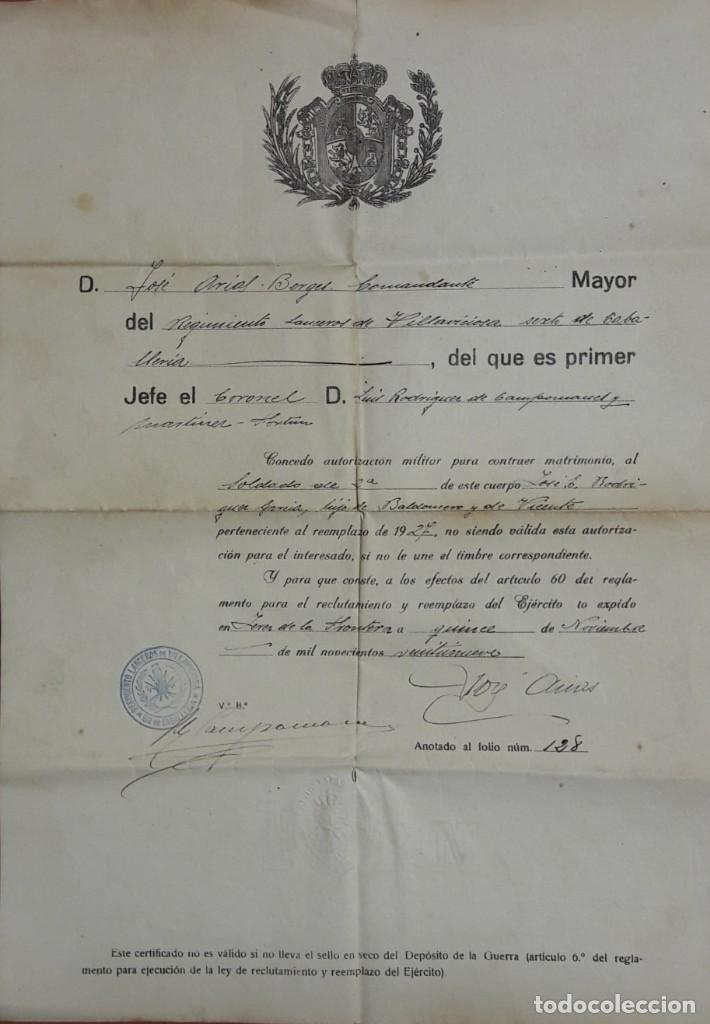 D. José Arias-Berges Comandante Mayor
del Regimiento Lanceros de Villaviciosa sexto de Caba-
lleria, del que es primer
Jefe el Coronel D. Luis Rodriguez de Campomanes y
Martinez-Fortun
Concedo autorización militar para contraer matrimonio, al
Soldado de 2ª de este cuerpo José Rodri-
guez Garcia, hijo de Baldomero y de Vicenta
perteneciente al reemplazo de 1927, no siendo válida esta autoriza-
ción para el interesado, si no le une el timbre correspondiente.
Y para que conste, a los efectos del artículo 60 del regla-
mento para el reclutamiento y reemplazo del Ejército lo expido
en Jerez de la Frontera a quince de Noviembre
de mil novecientos veintinueve
REGIMIENTO LANCEROS DE VILLAVICIOSA
6º DE CABALLERIA
José Arias
V.º B.º
Campomanes
Anotado al folio núm. 128
Este certificado no es válido si no lleva el sello en seco del Depósito de la Guerra (artículo 6.º del regla-
mento para ejecución de la ley de reclutamiento y reemplazo del Ejército).
todocoleccion